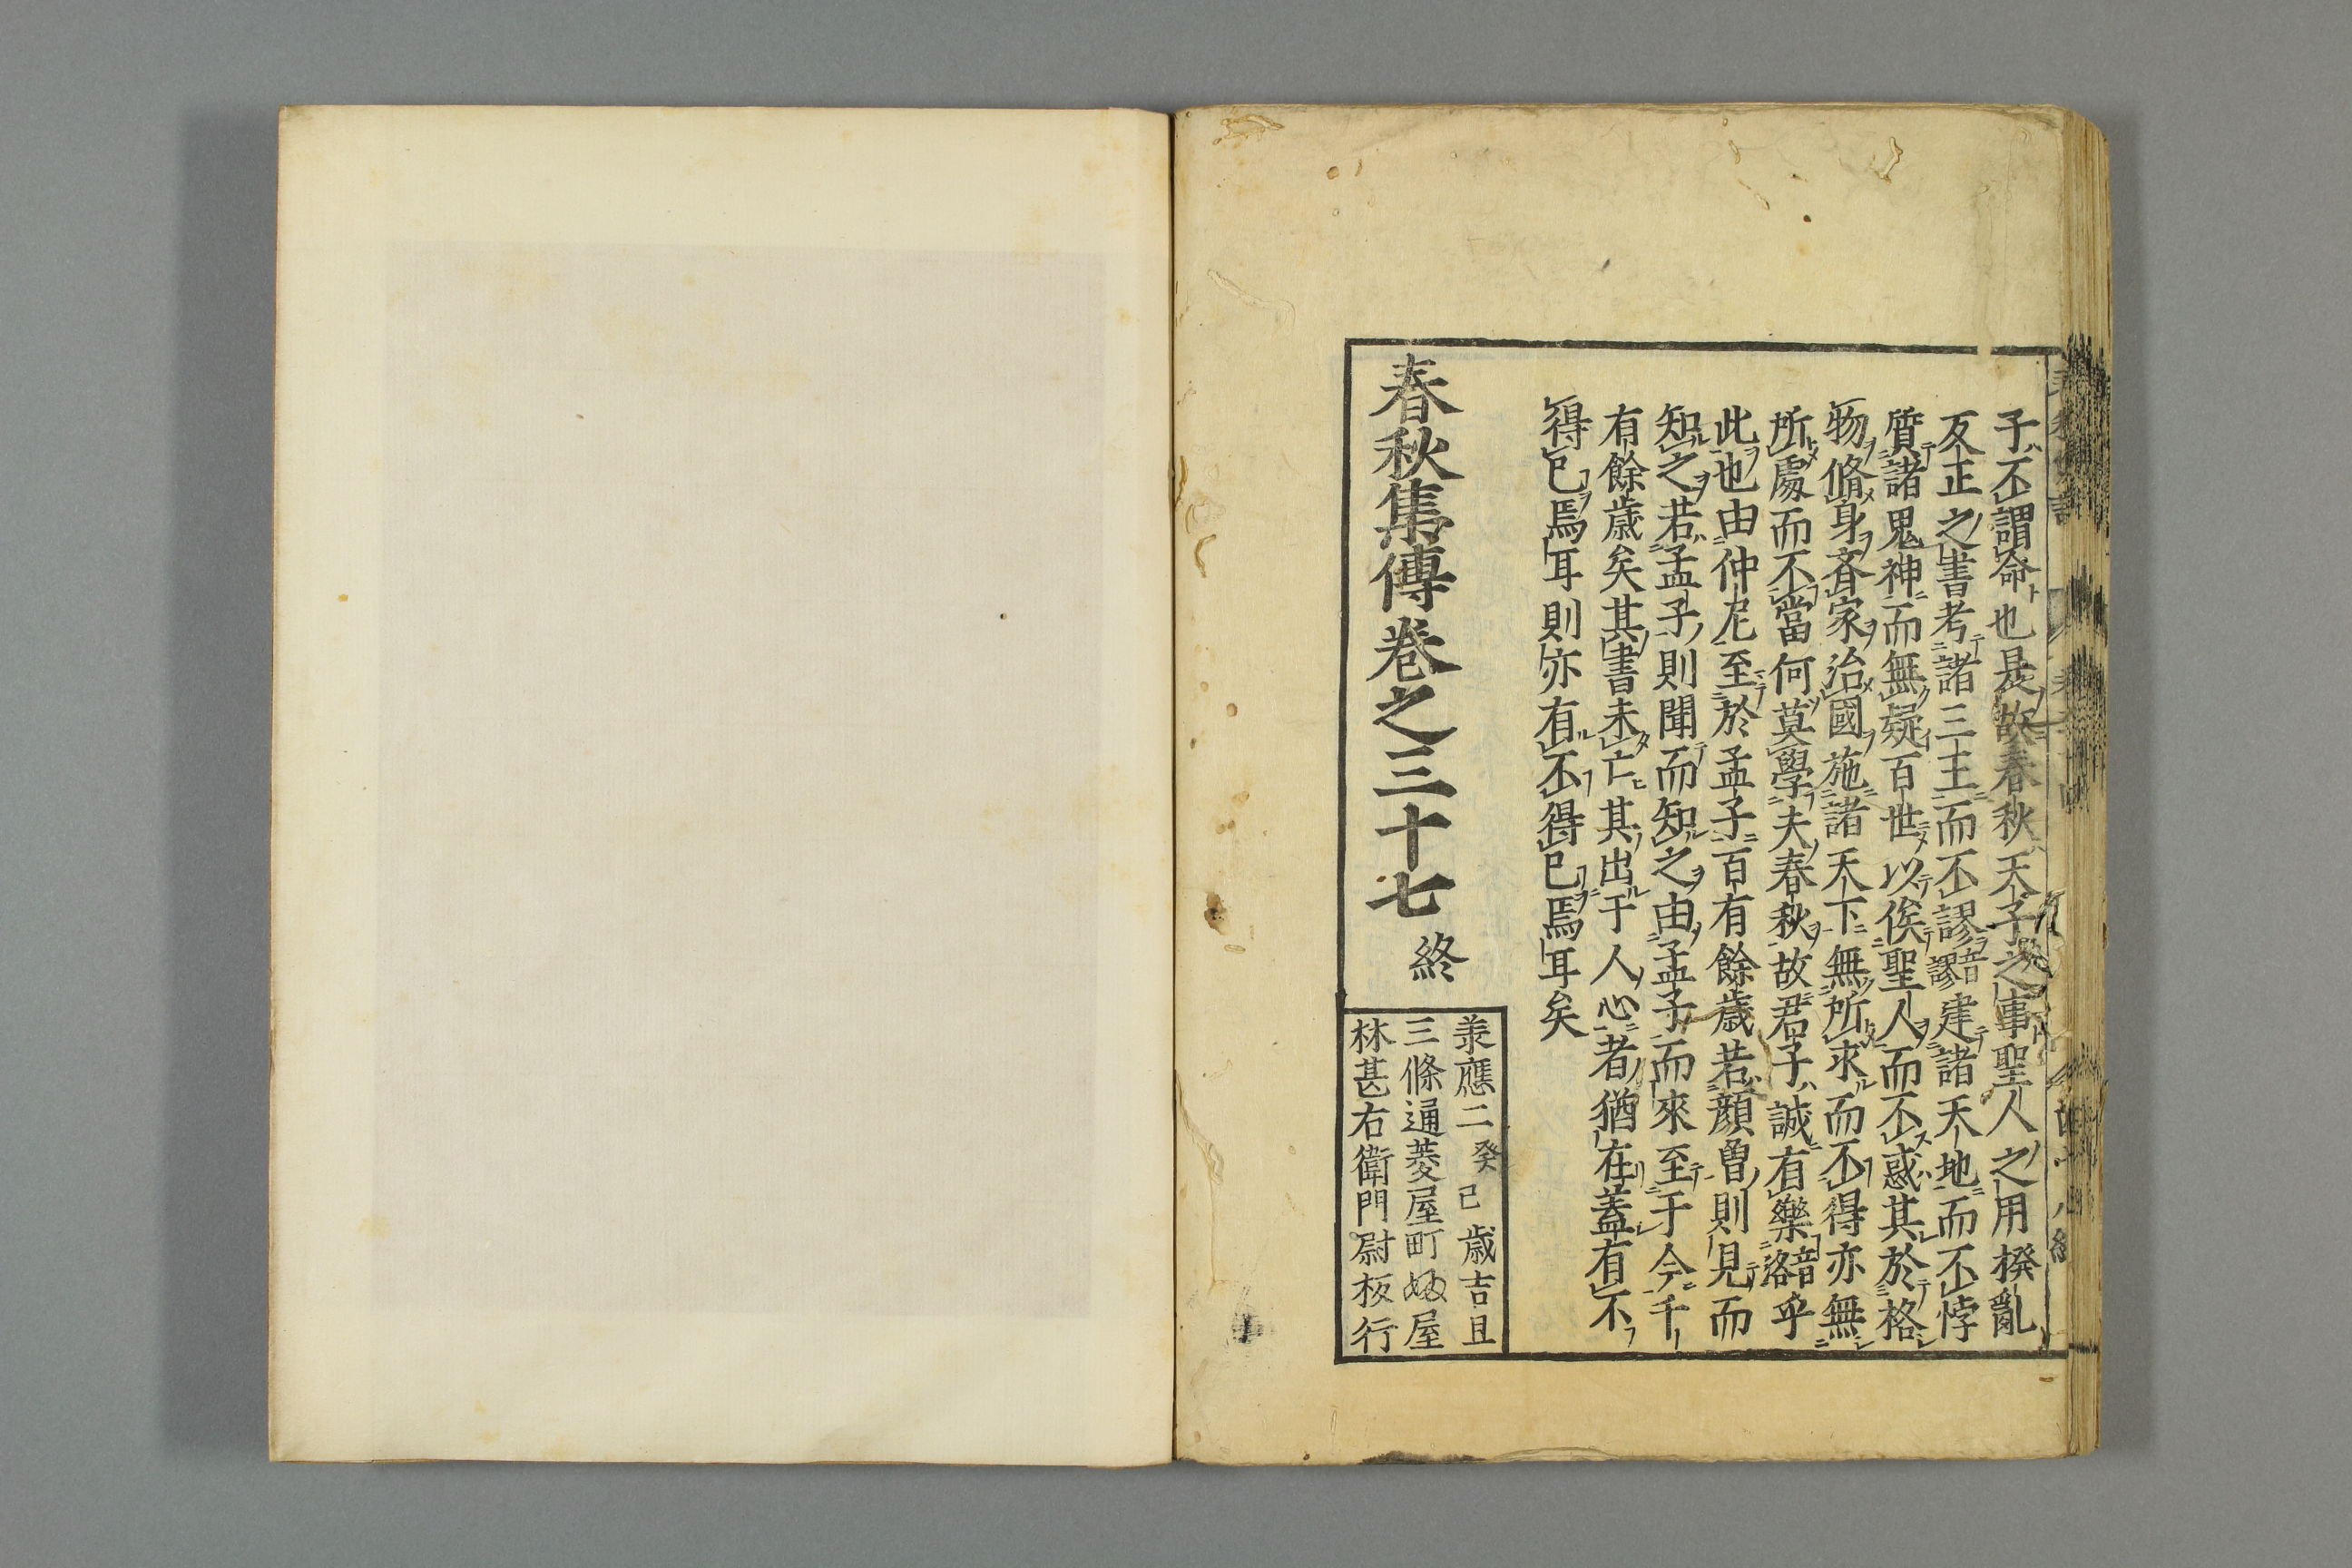 子不謂命也是故春秋天子之事聖人之用撥亂
反正之書考諸三王而不謬音謬建諸天地而不悖
質諸鬼神而無疑百世以俟聖人而不惑其於格
物脩身齊家治國施諸天下無所求而不得亦無
所處而不當何莫學夫春秋故君子誠有樂音洛乎
此也由仲尼至於孟子百有餘歲若顏曾則見而
知之若孟子則聞而知之由孟子而來至于今千
有餘歲矣其書未亡其出于人心者猶在蓋有不
得已焉耳則亦有不得已焉耳矣
春秋集傳卷之三十七 終
承應二癸巳歲吉旦
三條通菱屋町婦屋
林甚右衛門尉板行